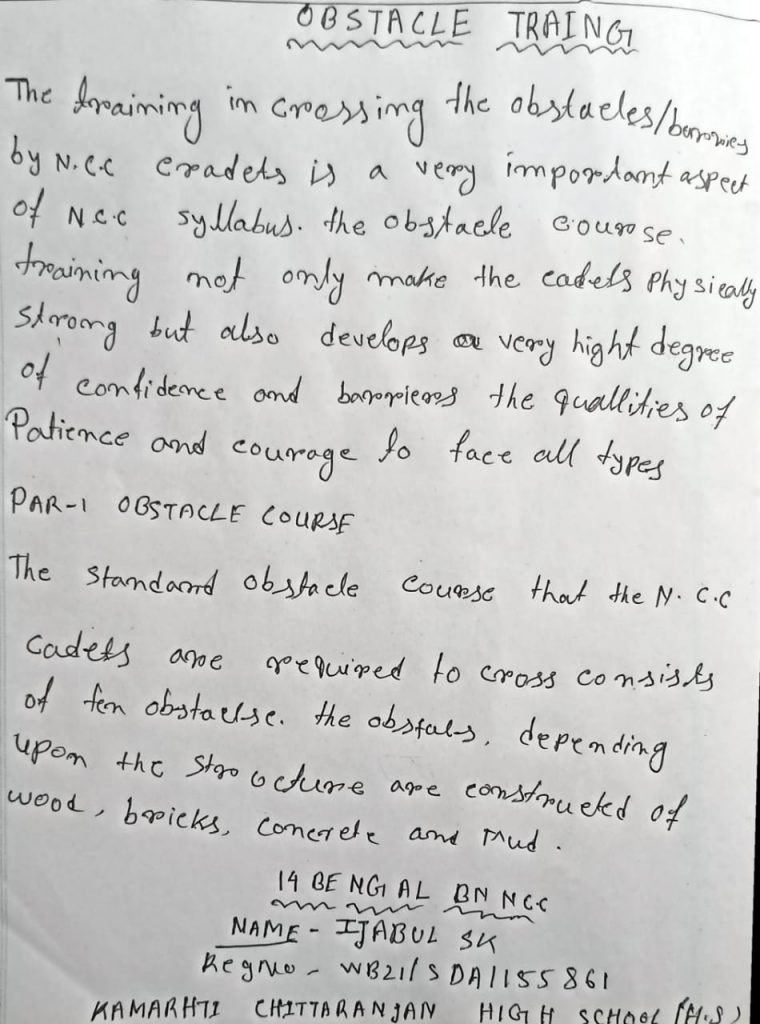 OBSTACLE TRAING
The training in crossing the obstacles/barrories
by N.C.C cradets is a very important aspect
of N.C.C syllabus. the obstacle course.
training not only make the cadets Physically
Strong but also develops a very hight degree
of confidence and barrriers the quallities of
Patience and courage to face all types
PAR-1 OBSTACLE COURSE
The Standard obstacle course that the N.C.C
Cadets are required to cross consists
of ten obstaclse. the obstals, depending
upon the structure are constructed of
wood, bricks, concrete and Mud.
14 BENGAL BN NCC
NAME - IJABUL SK
Regno - WB21/SDA/155861
KAMARHTI CHITTARANJAN HIGH SCHOOL (H.S)